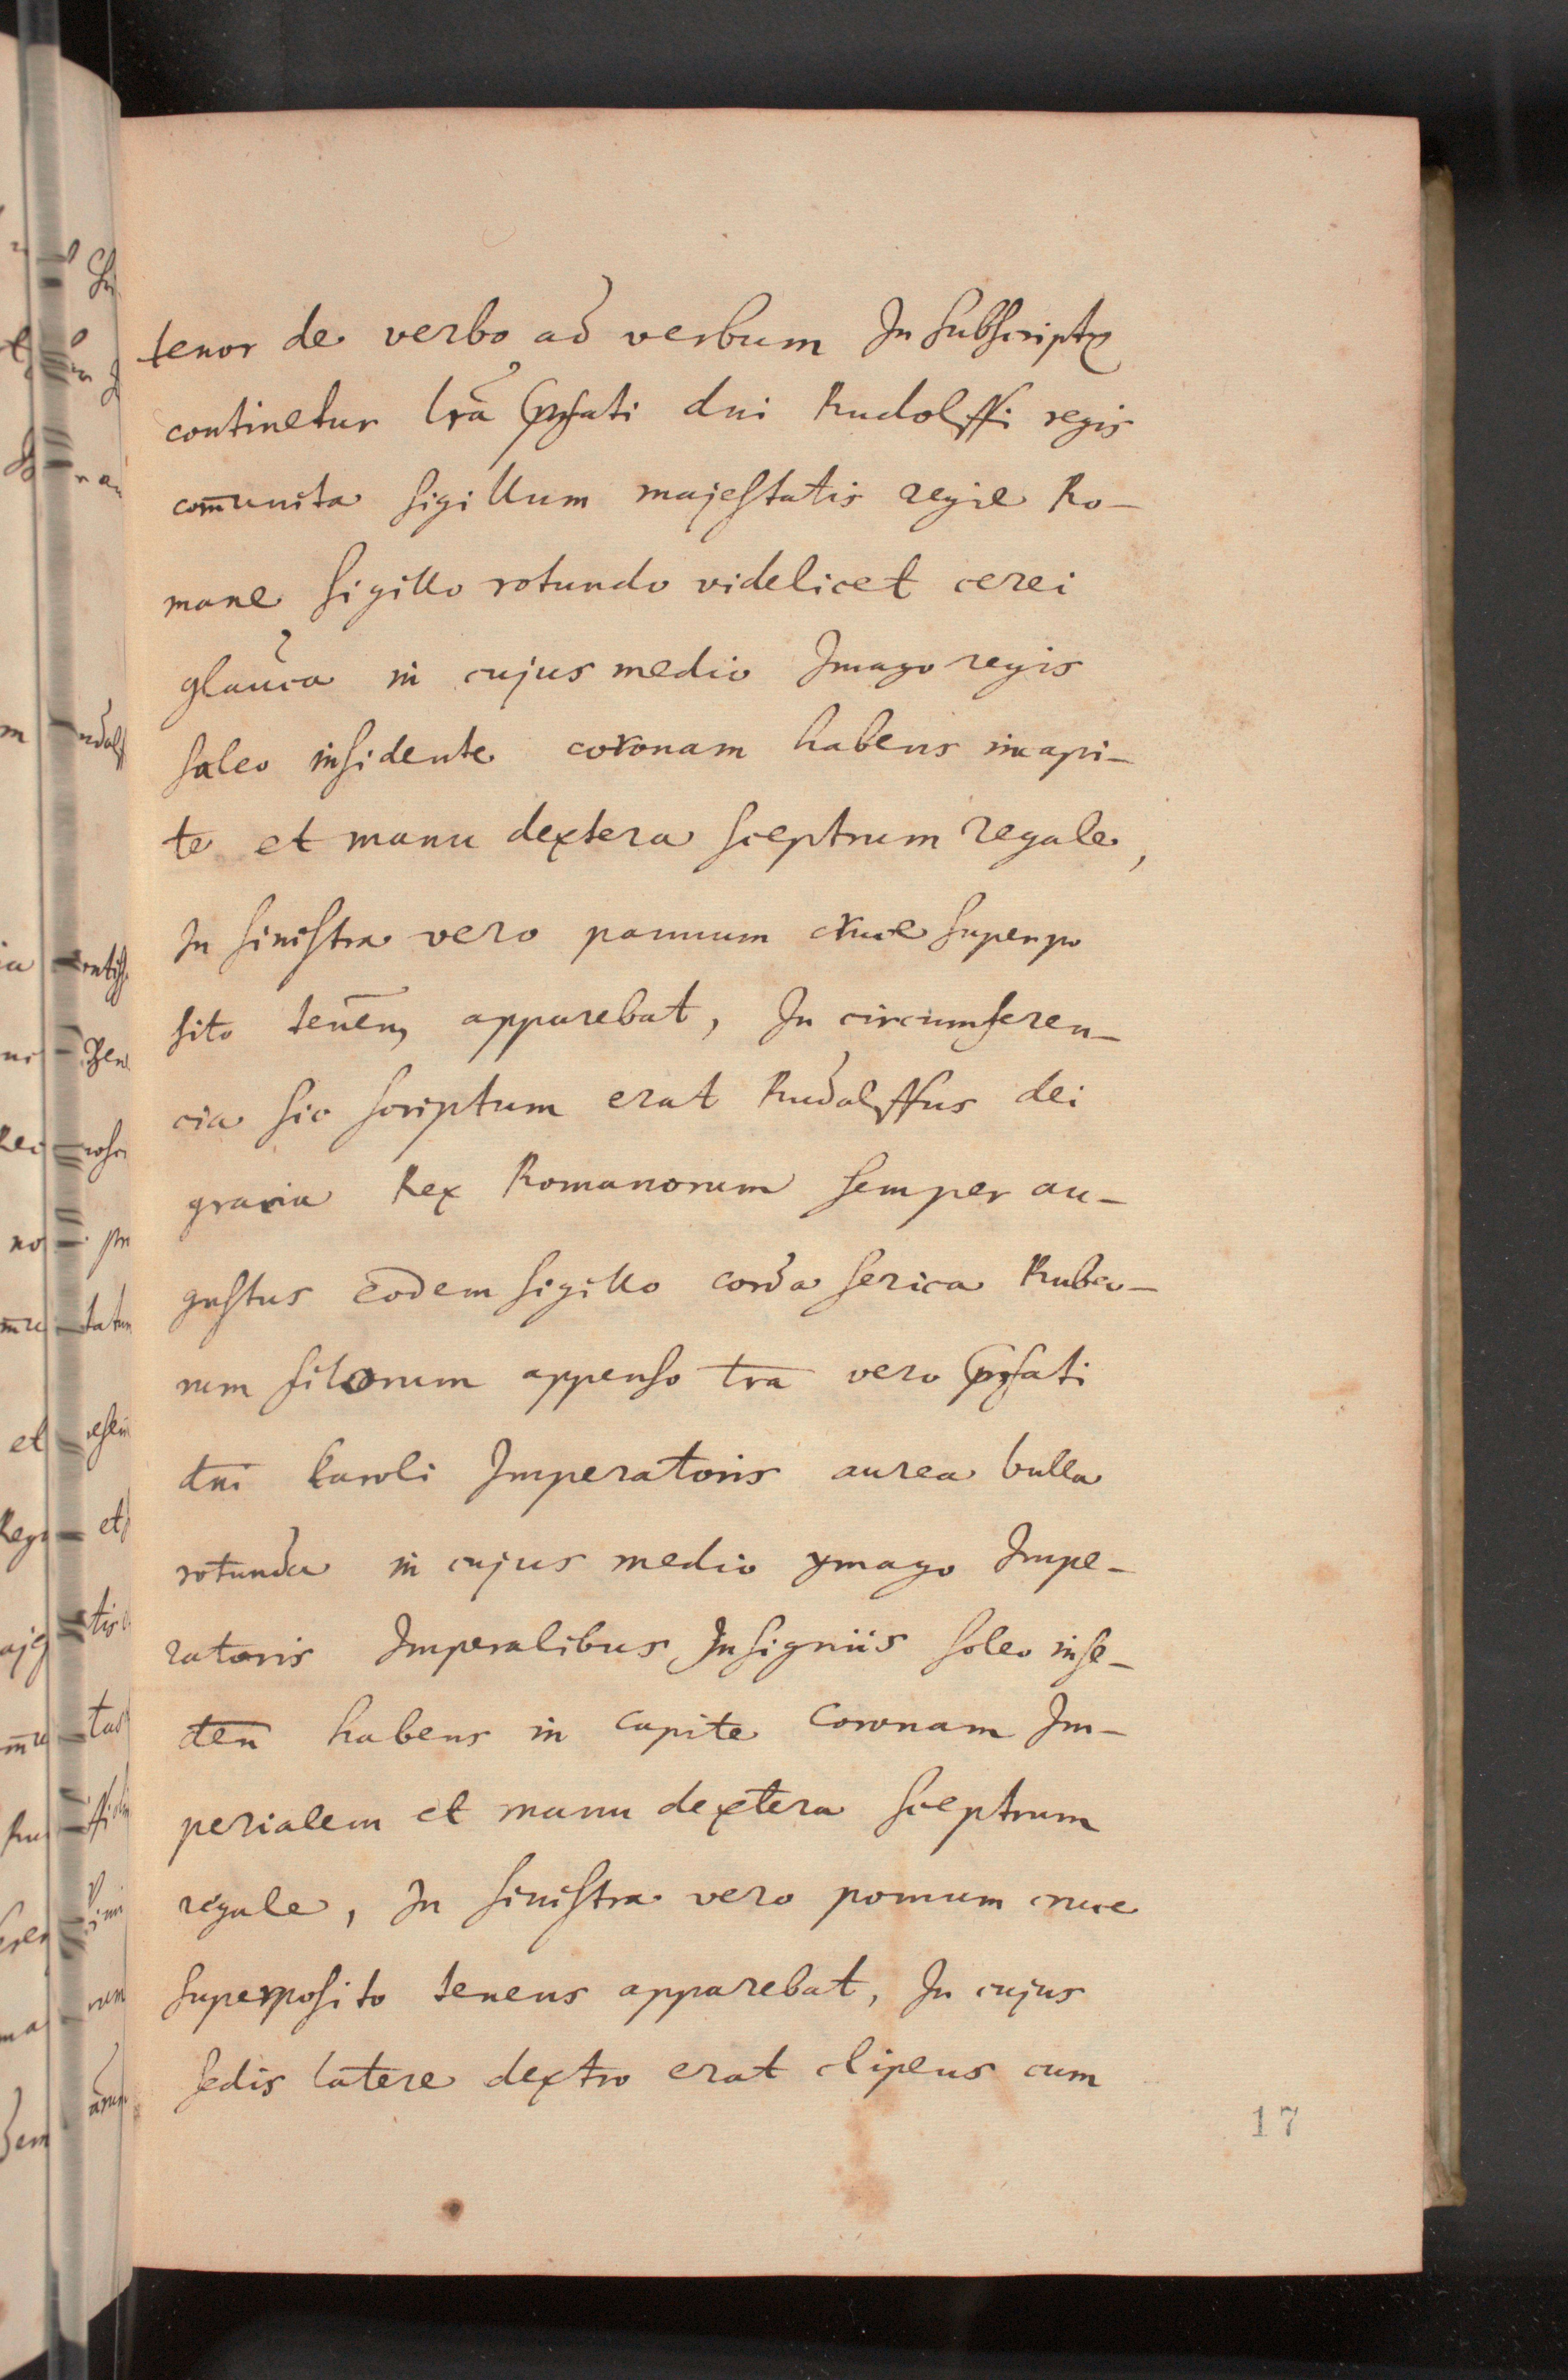 tenor de verbo ad verbum In subscriptꝭ
continetur lr̃a p̃fati dni Rudolffi regis
com̄unita sigillum majestatis regie Ro-
mane sigillo rotundo videlicet cerei
glauca in cujus medio Imago regis
soleo insidente coronam habens in capi-
te et manu dextera sceptrum regale,
In sinistra vero pannum cruce superpo
sito teñen, apparebat, In circumferen-
cia sic scriptum erat Rudolffus dei
gracia Rex Romanorum semper au-
gustus eodem sigillo corda serica Rubeo-
rum filorum appenso lr̄a vero p̄fati
dn̄i karoli Imperatoris aurea bulla
rotunda in cujus medio ymago Impe-
ratoris Imperalibus Insigniis soleo inse-
den̄ habens in capite Coronam Im-
perialem et manu dextera sceptrum
regale, In sinistra vero pomum cruce
superposito tenens apparebat, In cujus
sedis latere dextro erat clipeus cum
17